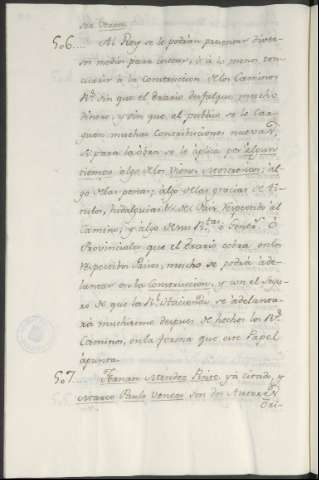 506....
Al Rey se le podrian presentar diver-
sos medios para costear, ó á lo menos con-
currir à la Construccion de los Caminos
Rs. sin que el Erario desfalque mucho
dinero, y sin que al publico se le car-
guen muchas contribuciones nuevas.
Si para la obra se le aplica por algun
tiempo algo de los Vienes Mostrencos; al-
go de las penas; algo de las gracias de Ti-
tulos, hidalguias &c. del Pais respectivo al
Camino; y algo de sus Rtas. ò
Provinciales que el Erario cobra en los
respectivos Paises, mucho se podrà ade-
lantar en la Construccion, y con el segu-
ro de que la Rl. Hacienda se adelanta-
rà muchisimo despues de hechos los Rs.
Caminos, en la forma que este Papel
apunta.
507. Fernan Mendez Pinto, ya citado, y
Marco Paulo Veneto son dos Autores